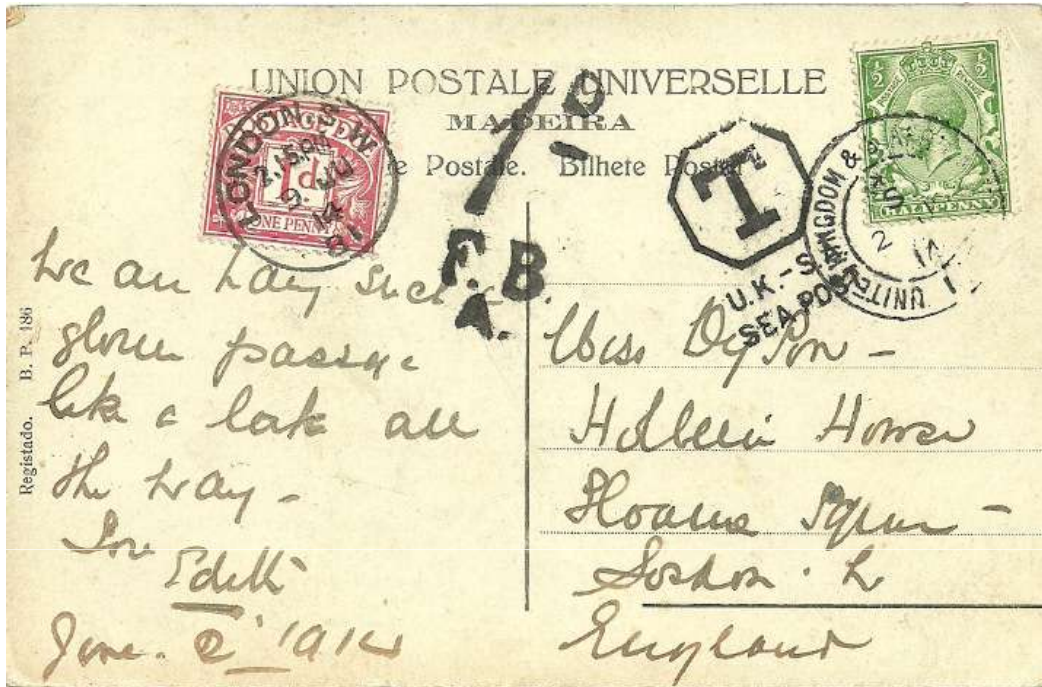 UNION POSTALE UNIVERSELLE
MADEIRA
Postale. Bilhete Postal
½ ½
HALFPENNY
1d
ONE PENNY
LONDON S.W.
2.15 PM
9 JU
14
81
1 D
F.B.
A.
T
U.K.-S
SEA POST
UNITED KINGDOM &
2
14
Registado. B. P. 186
We are having such a
passage
like a lake all
the way -
Edith
June. 2 1914
Miss Dyson -
Holbein House
Sloane Square -
London.
England